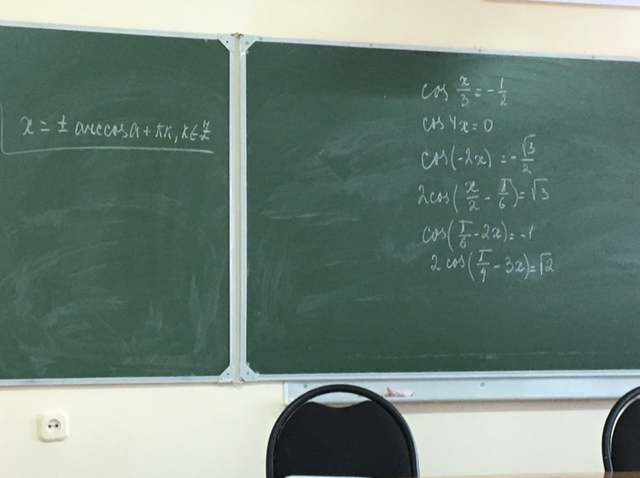 x = ± arccos a + πk, k ∈ Z
cos x/3 = -1/2
cos 4x = 0
cos(-2x) = -√3/2
2cos(x/2 - π/6) = √3
cos(π/6 - 2x) = -1
2 cos(π/4 - 3x) = √2